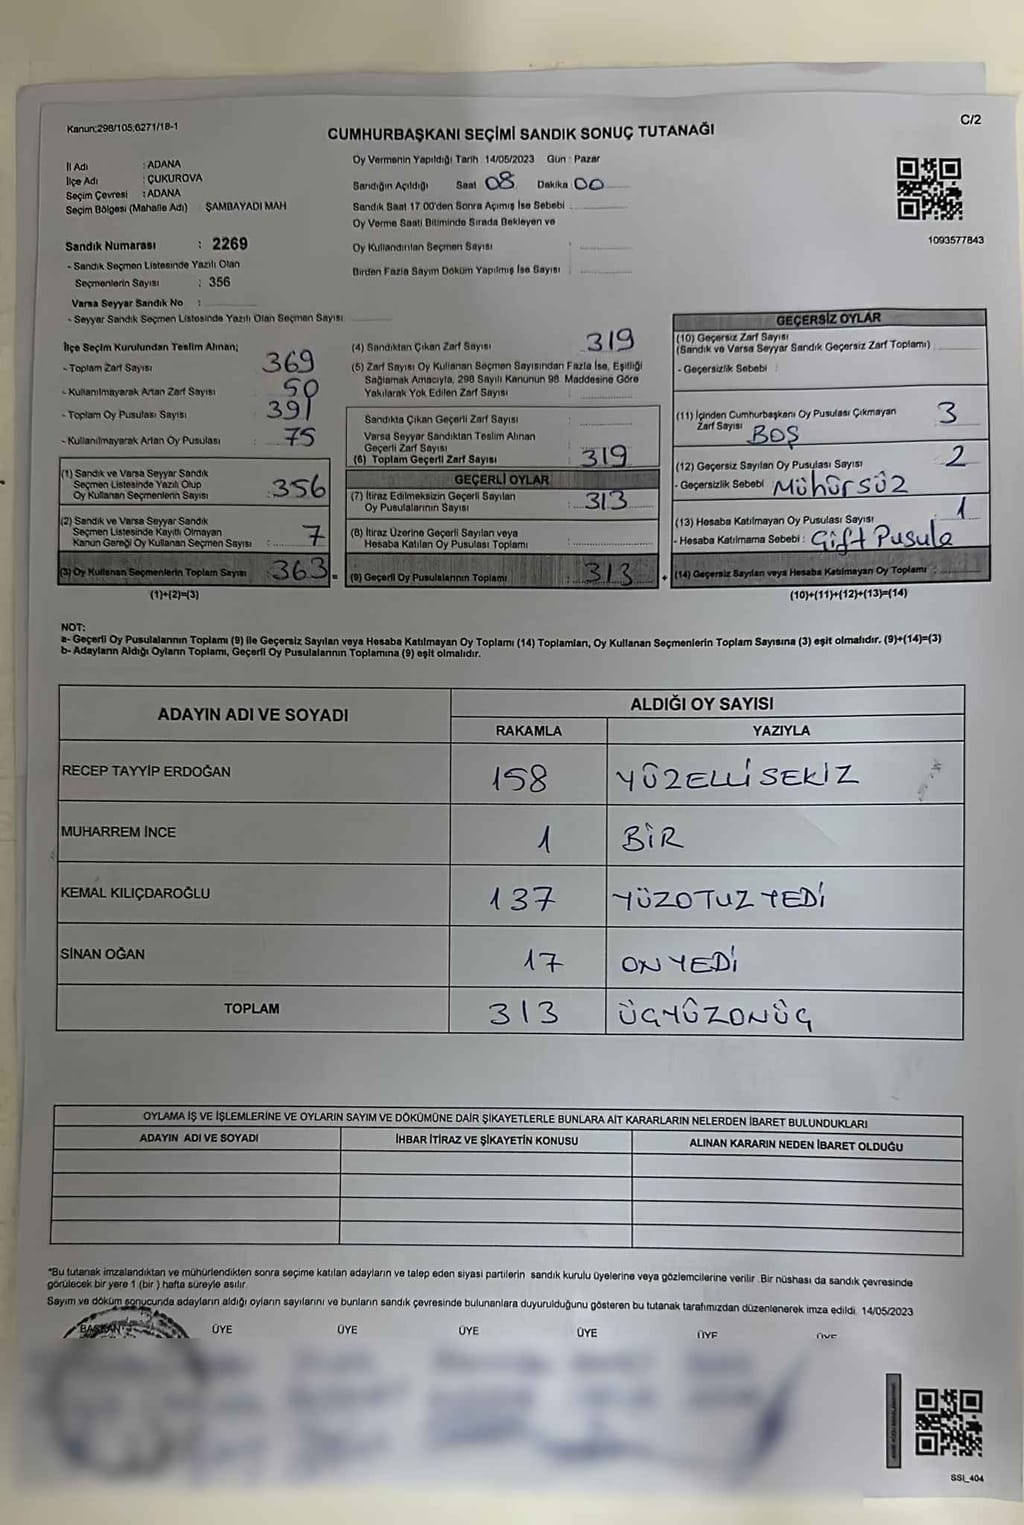 Kanun;298/105;6271/18-1
C/2
CUMHURBAŞKANI SEÇİMİ SANDIK SONUÇ TUTANAĞI
İl Adı : ADANA
İlçe Adı : ÇUKUROVA
Seçim Çevresi : ADANA
Seçim Bölgesi (Mahalle Adı) ŞAMBAYADI MAH
Sandık Numarası : 2269
- Sandık Seçmen Listesinde Yazılı Olan
Seçmenlerin Sayısı : 356
Varsa Seyyar Sandık No :
- Seyyar Sandık Seçmen Listesinde Yazılı Olan Seçmen Sayısı
Oy Vermenin Yapıldığı Tarih 14/05/2023 Gün : Pazar
Sandığın Açıldığı Saat 08 Dakika 00
Sandık Saat 17 00'den Sonra Açımış İse Sebebi :
Oy Verme Saati Bitiminde Sırada Bekleyen ve
Oy Kullandırılan Seçmen Sayısı :
Birden Fazla Sayım Döküm Yapılmış İse Sayısı :
1093577843
İlçe Seçim Kurulundan Teslim Alınan;
- Toplam Zarf Sayısı 369
- Kullanılmayarak Artan Zarf Sayısı : 50
- Toplam Oy Pusulası Sayısı 391
- Kullanılmayarak Artan Oy Pusulası : 75
(1) Sandık ve Varsa Seyyar Sandık
Seçmen Listesinde Yazılı Olup
Oy Kullanan Seçmenlerin Sayısı : 356
(2) Sandık ve Varsa Seyyar Sandık
Seçmen Listesinde Kayıtlı Olmayan
Kanun Gereği Oy Kullanan Seçmen Sayısı : 7
(3) Oy Kullanan Seçmenlerin Toplam Sayısı : 363 =
(1)+(2)=(3)
(4) Sandıktan Çıkan Zarf Sayısı 319
(5) Zarf Sayısı Oy Kullanan Seçmen Sayısından Fazla İse, Eşitliği
Sağlamak Amacıyla, 298 Sayılı Kanunun 98. Maddesine Göre
Yakılarak Yok Edilen Zarf Sayısı :
Sandıkta Çıkan Geçerli Zarf Sayısı :
Varsa Seyyar Sandıktan Teslim Alınan
Geçerli Zarf Sayısı :
(6) Toplam Geçerli Zarf Sayısı 319
GEÇERLİ OYLAR
(7) İtiraz Edilmeksizin Geçerli Sayılan
Oy Pusulalarının Sayısı : 313
(8) İtiraz Üzerine Geçerli Sayılan veya
Hesaba Katılan Oy Pusulası Toplamı :
(9) Geçerli Oy Pusulalarının Toplamı : 313 +
GEÇERSİZ OYLAR
(10) Geçersiz Zarf Sayısı
(Sandık ve Varsa Seyyar Sandık Geçersiz Zarf Toplamı)
- Geçersizlik Sebebi :
(11) İçinden Cumhurbaşkanı Oy Pusulası Çıkmayan
Zarf Sayısı BOŞ 3
(12) Geçersiz Sayılan Oy Pusulası Sayısı 2
- Geçersizlik Sebebi : MÜHÜRSÜZ
(13) Hesaba Katılmayan Oy Pusulası Sayısı 1
- Hesaba Katılmama Sebebi : Çift Pusula
(14) Geçersiz Sayılan veya Hesaba Katılmayan Oy Toplamı :
(10)+(11)+(12)+(13)=(14)
NOT:
a- Geçerli Oy Pusulalarının Toplamı (9) ile Geçersiz Sayılan veya Hesaba Katılmayan Oy Toplamı (14) Toplamları, Oy Kullanan Seçmenlerin Toplam Sayısına (3) eşit olmalıdır. (9)+(14)=(3)
b- Adayların Aldığı Oyların Toplamı, Geçerli Oy Pusulalarının Toplamına (9) eşit olmalıdır.
ADAYIN ADI VE SOYADI
ALDIĞI OY SAYISI
RAKAMLA YAZIYLA
RECEP TAYYİP ERDOĞAN 158 YÜZELLİ SEKİZ
MUHARREM İNCE 1 BİR
KEMAL KILIÇDAROĞLU 137 YÜZOTUZ YEDİ
SİNAN OĞAN 17 ON YEDİ
TOPLAM 313 ÜÇYÜZONÜÇ
OYLAMA İŞ VE İŞLEMLERİNE VE OYLARIN SAYIM VE DÖKÜMÜNE DAİR ŞİKAYETLERLE BUNLARA AİT KARARLARIN NELERDEN İBARET BULUNDUKLARI
ADAYIN ADI VE SOYADI İHBAR İTİRAZ VE ŞİKAYETİN KONUSU ALINAN KARARIN NEDEN İBARET OLDUĞU
*Bu tutanak imzalandıktan ve mühürlendikten sonra seçime katılan adayların ve talep eden siyasi partilerin sandık kurulu üyelerine veya gözlemcilerine verilir .Bir nüshası da sandık çevresinde
görülecek bir yere 1 (bir ) hafta süreyle asılır.
Sayım ve döküm sonucunda adayların aldığı oyların sayılarını ve bunların sandık çevresinde bulunanlara duyurulduğunu gösteren bu tutanak tarafımızdan düzenlenerek imza edildi. 14/05/2023
BAŞKAN ÜYE ÜYE ÜYE ÜYE ÜYE ÜYE
SSI_404